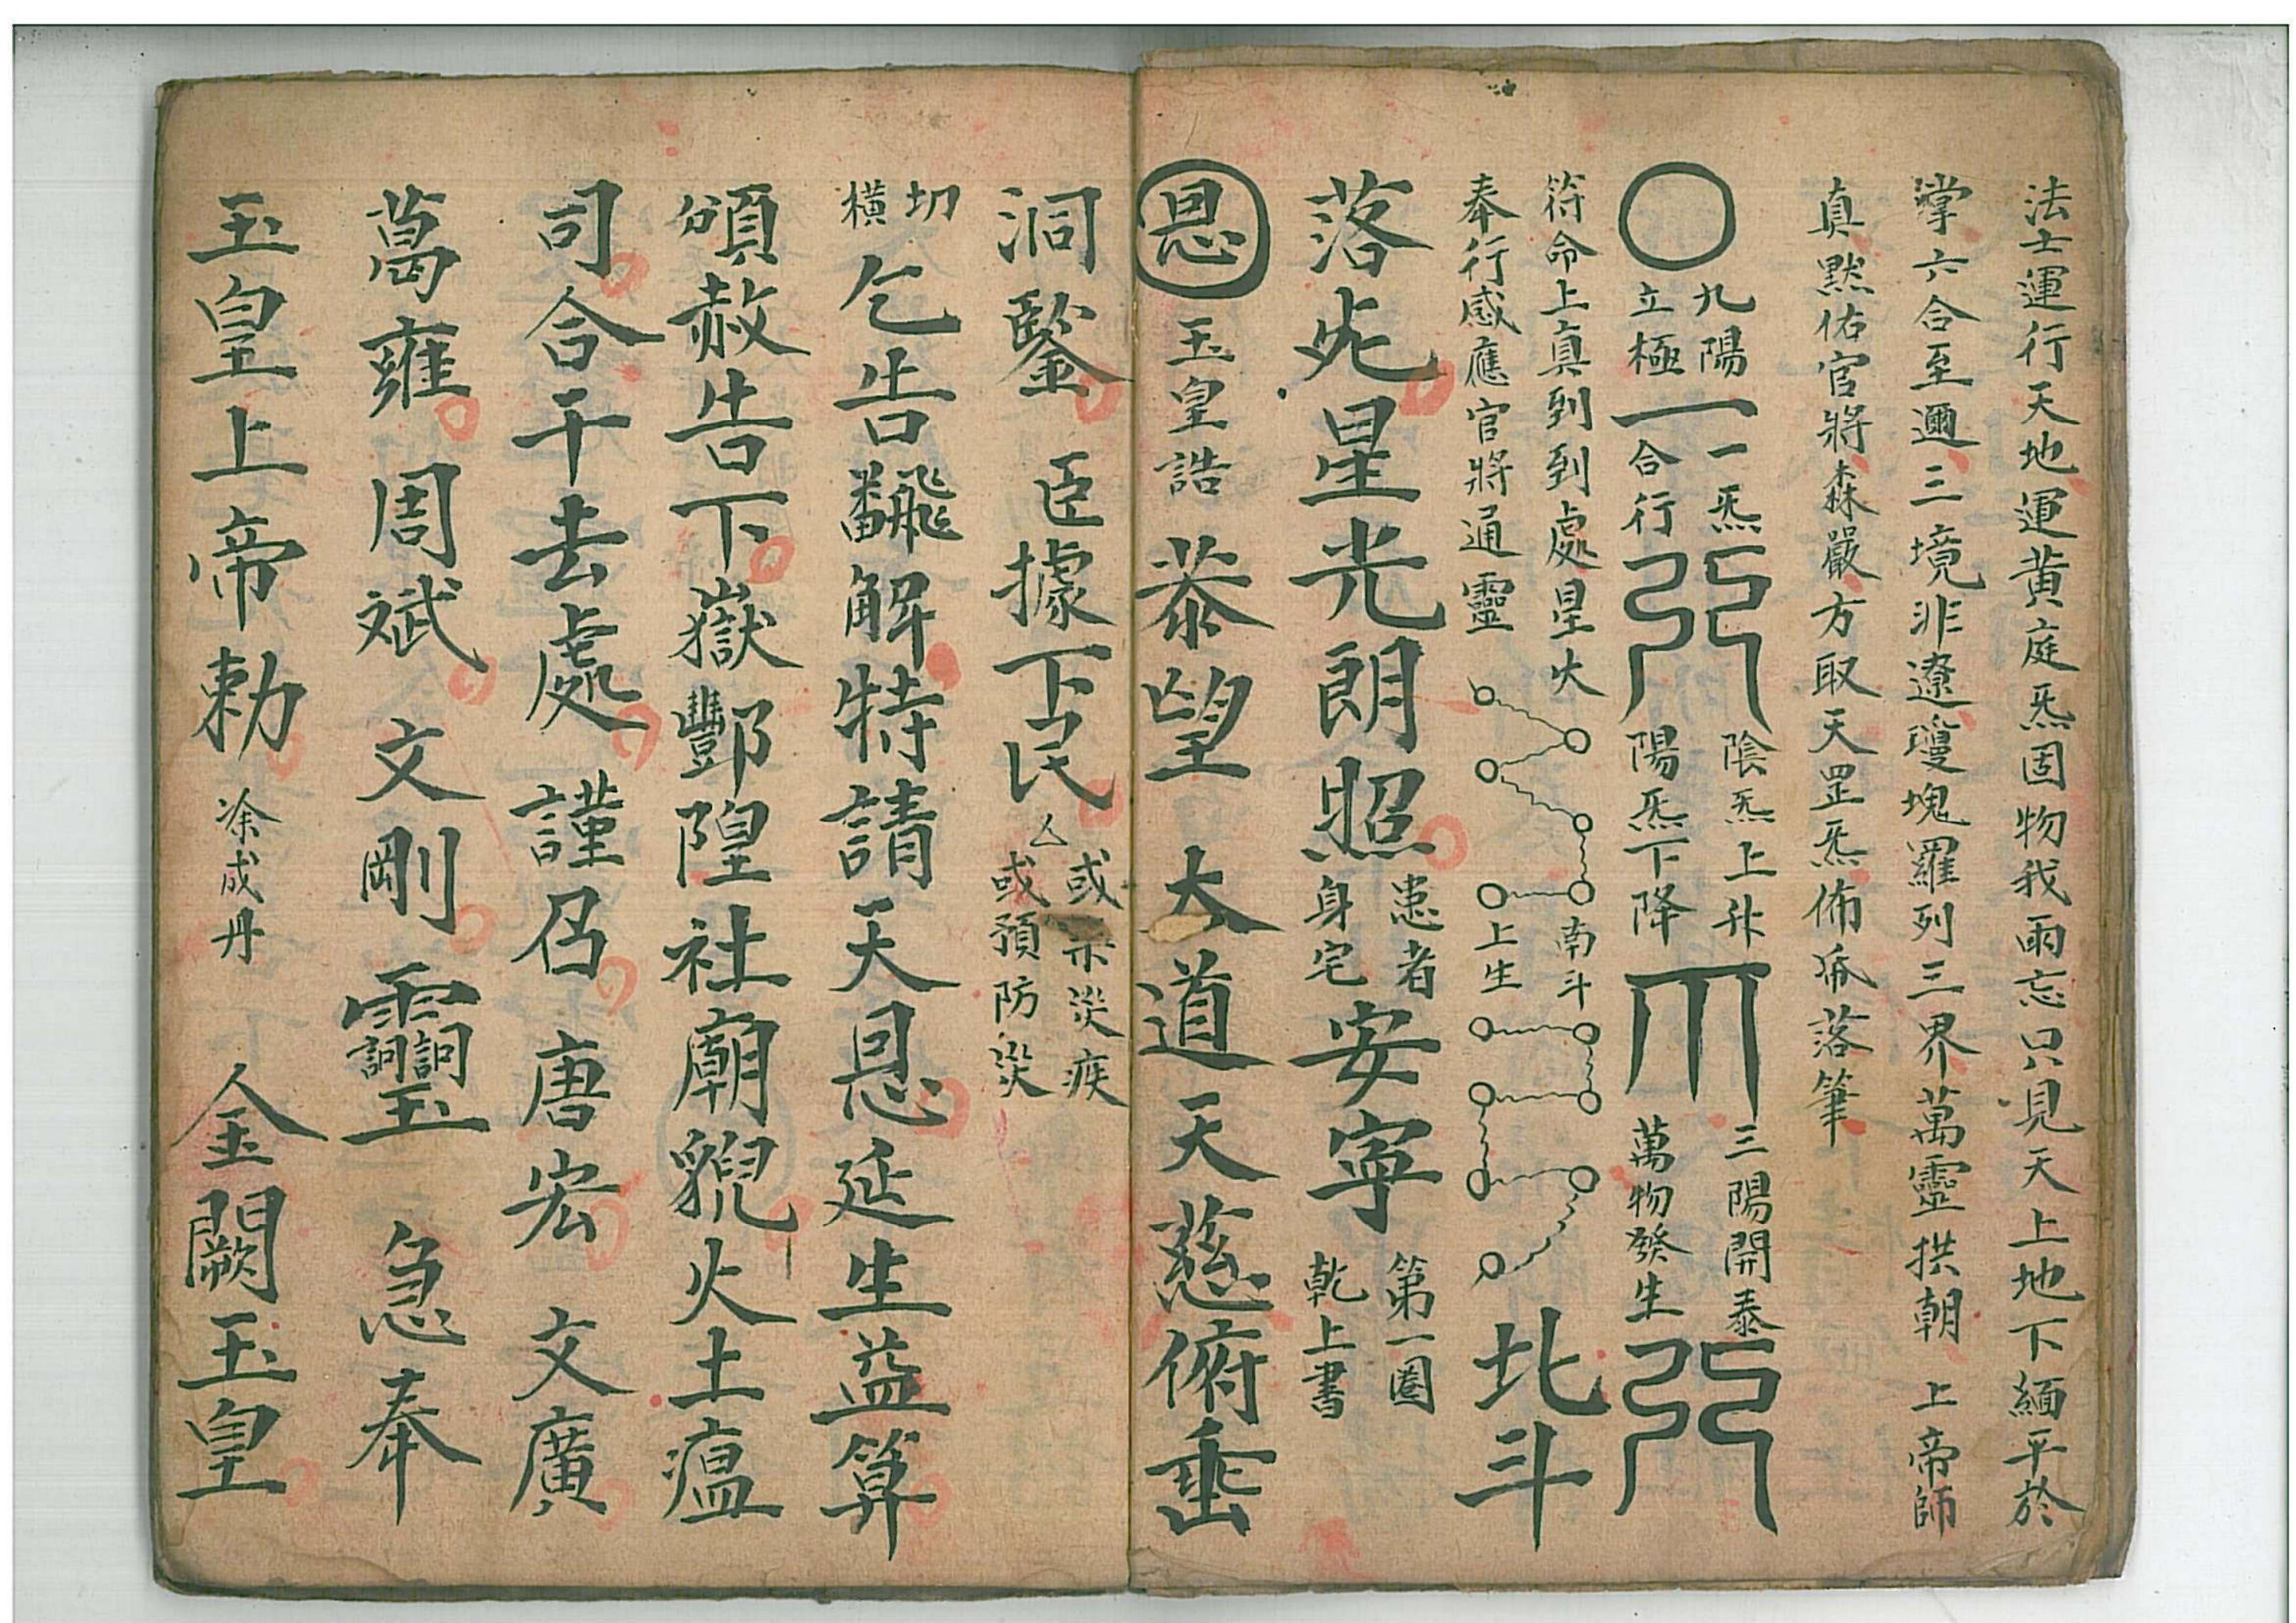 法士運行天地運黃庭炁固物我兩忘只見天上地下緬平於
掌六合至邇三境非遼瓊塊羅列三界萬靈拱朝上帝師
真默佑官將森嚴方取天罡炁佈㡀落筆
九陽
立極
一炁
合行
陰炁上升
陽炁下降
三陽開泰
萬物發生
符命上真到到處星火
奉行感應官將通靈
南斗
上生
北斗
落
星光朗照
患者
身宅
安寧
第一圈
乾上書
恩
玉皇誥
恭望大道天慈俯垂
洞鑒臣據下民
厶
或 災疾
或預防災
切
橫
乞告飜解特請天恩延生益算
頒赦告下嶽酆隍社廟貎火土瘟
司合干去處謹召唐宏文廣
葛雍周斌文剛 急奉
玉皇上帝勅
涂成丹
金闕玉皇